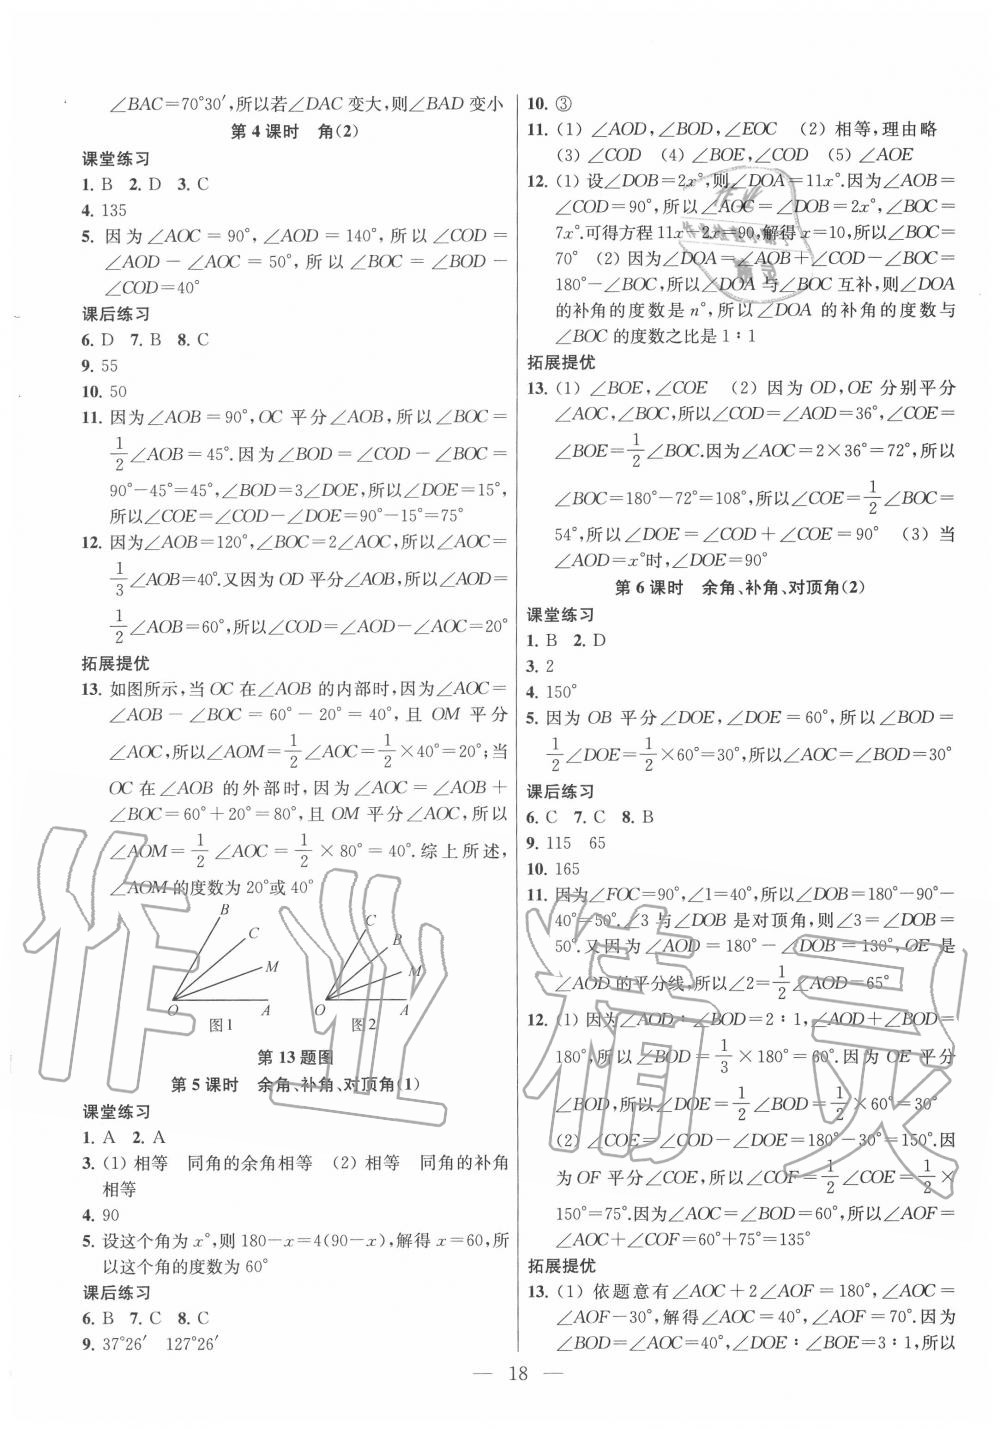 ∠BAC=70°30′,所以若∠DAC变大,则∠BAD变小
第4课时 角(2)
课堂练习
1. B 2. D 3. C
4. 135
5. 因为∠AOC=90°,∠AOD=140°,所以∠COD=
∠AOD-∠AOC=50°,所以∠BOC=∠BOD-
∠COD=40°
课后练习
6. D 7. B 8. C
9. 55
10. 50
11. 因为∠AOB=90°,OC平分∠AOB,所以∠BOC=
1/2∠AOB=45°.因为∠BOD=∠COD-∠BOC=
90°-45°=45°,∠BOD=3∠DOE,所以∠DOE=15°,
所以∠COE=∠COD-∠DOE=90°-15°=75°
12. 因为∠AOB=120°,∠BOC=2∠AOC,所以∠AOC=
1/3∠AOB=40°.又因为OD平分∠AOB,所以∠AOD=
1/2∠AOB=60°,所以∠COD=∠AOD-∠AOC=20°
拓展提优
13. 如图所示,当OC在∠AOB的内部时,因为∠AOC=
∠AOB-∠BOC=60°-20°=40°,且OM平分
∠AOC,所以∠AOM=1/2∠AOC=1/2×40°=20°;当
OC在∠AOB的外部时,因为∠AOC=∠AOB+
∠BOC=60°+20°=80°,且OM平分∠AOC,所以
∠AOM=1/2∠AOC=1/2×80°=40°.综上所述,
∠AOM的度数为20°或40°
B
C
M
O
A
图1
C
B
M
O
A
图2
第13题图
第5课时 余角、补角、对顶角(1)
课堂练习
1. A 2. A
3. (1) 相等 同角的余角相等 (2) 相等 同角的补角
相等
4. 90
5. 设这个角为x°,则180-x=4(90-x),解得x=60,所
以这个角的度数为60°
课后练习
6. B 7. C 8. C
9. 37°26′ 127°26′
10. ③
11. (1) ∠AOD,∠BOD,∠EOC (2) 相等,理由略
(3) ∠COD (4) ∠BOE,∠COD (5) ∠AOE
12. (1) 设∠DOB=2x°,则∠DOA=11x°.因为∠AOB=
∠COD=90°,所以∠AOC=∠DOB=2x°,∠BOC=
7x°.可得方程11x-2x=90,解得x=10,所以∠BOC=
70° (2) 因为∠DOA=∠AOB+∠COD-∠BOC=
180°-∠BOC,所以∠DOA与∠BOC互补,则∠DOA
的补角的度数是n°,所以∠DOA的补角的度数与
∠BOC的度数之比是1∶1
拓展提优
13. (1) ∠BOE,∠COE (2) 因为OD,OE分别平分
∠AOC,∠BOC,所以∠COD=∠AOD=36°,∠COE=
∠BOE=1/2∠BOC.因为∠AOC=2×36°=72°,所以
∠BOC=180°-72°=108°,所以∠COE=1/2∠BOC=
54°,所以∠DOE=∠COD+∠COE=90° (3) 当
∠AOD=x°时,∠DOE=90°
第6课时 余角、补角、对顶角(2)
课堂练习
1. B 2. D
3. 2
4. 150°
5. 因为OB平分∠DOE,∠DOE=60°,所以∠BOD=
1/2∠DOE=1/2×60°=30°,所以∠AOC=∠BOD=30°
课后练习
6. C 7. C 8. B
9. 115 65
10. 165
11. 因为∠FOC=90°,∠1=40°,所以∠DOB=180°-90°-
40°=50°.∠3与∠DOB是对顶角,则∠3=∠DOB=
50°.又因为∠AOD=180°-∠DOB=130°,OE是
∠AOD的平分线,所以∠2=1/2∠AOD=65°
12. (1) 因为∠AOD∶∠BOD=2∶1,∠AOD+∠BOD=
180°,所以∠BOD=1/3×180°=60°.因为OE平分
∠BOD,所以∠DOE=1/2∠BOD=1/2×60°=30°
(2) ∠COE=∠COD-∠DOE=180°-30°=150°.因
为OF平分∠COE,所以∠COF=1/2∠COE=1/2×
150°=75°.因为∠AOC=∠BOD=60°,所以∠AOF=
∠AOC+∠COF=60°+75°=135°
拓展提优
13. (1) 依题意有∠AOC+2∠AOF=180°,∠AOC=
∠AOF-30°,解得∠AOC=40°,∠AOF=70°.因为
∠BOD=∠AOC=40°,∠DOE∶∠BOE=3∶1,所以
— 18 —
作业精灵